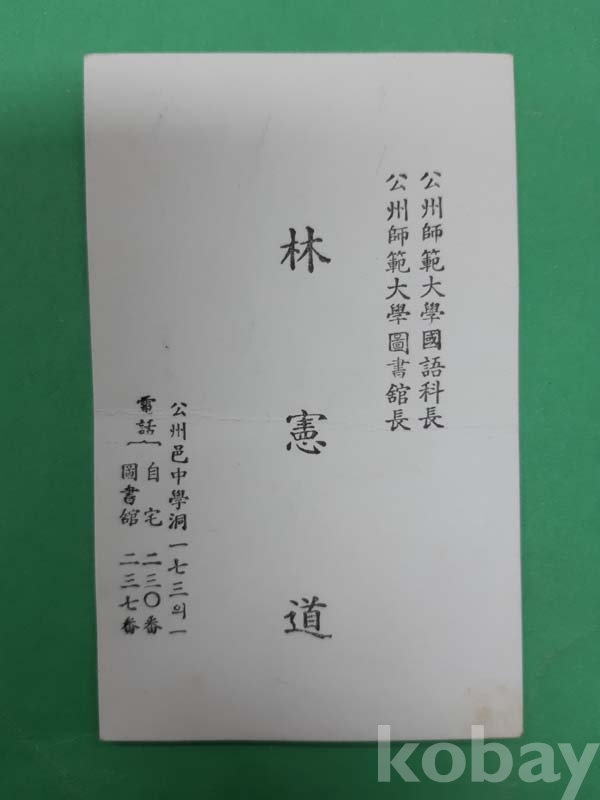 公州師範大學國語科長
公州師範大學圖書舘長
林憲道
公州邑中學洞一七三의一
電話{自宅 二三〇番
圖書舘 二三七番
kobay